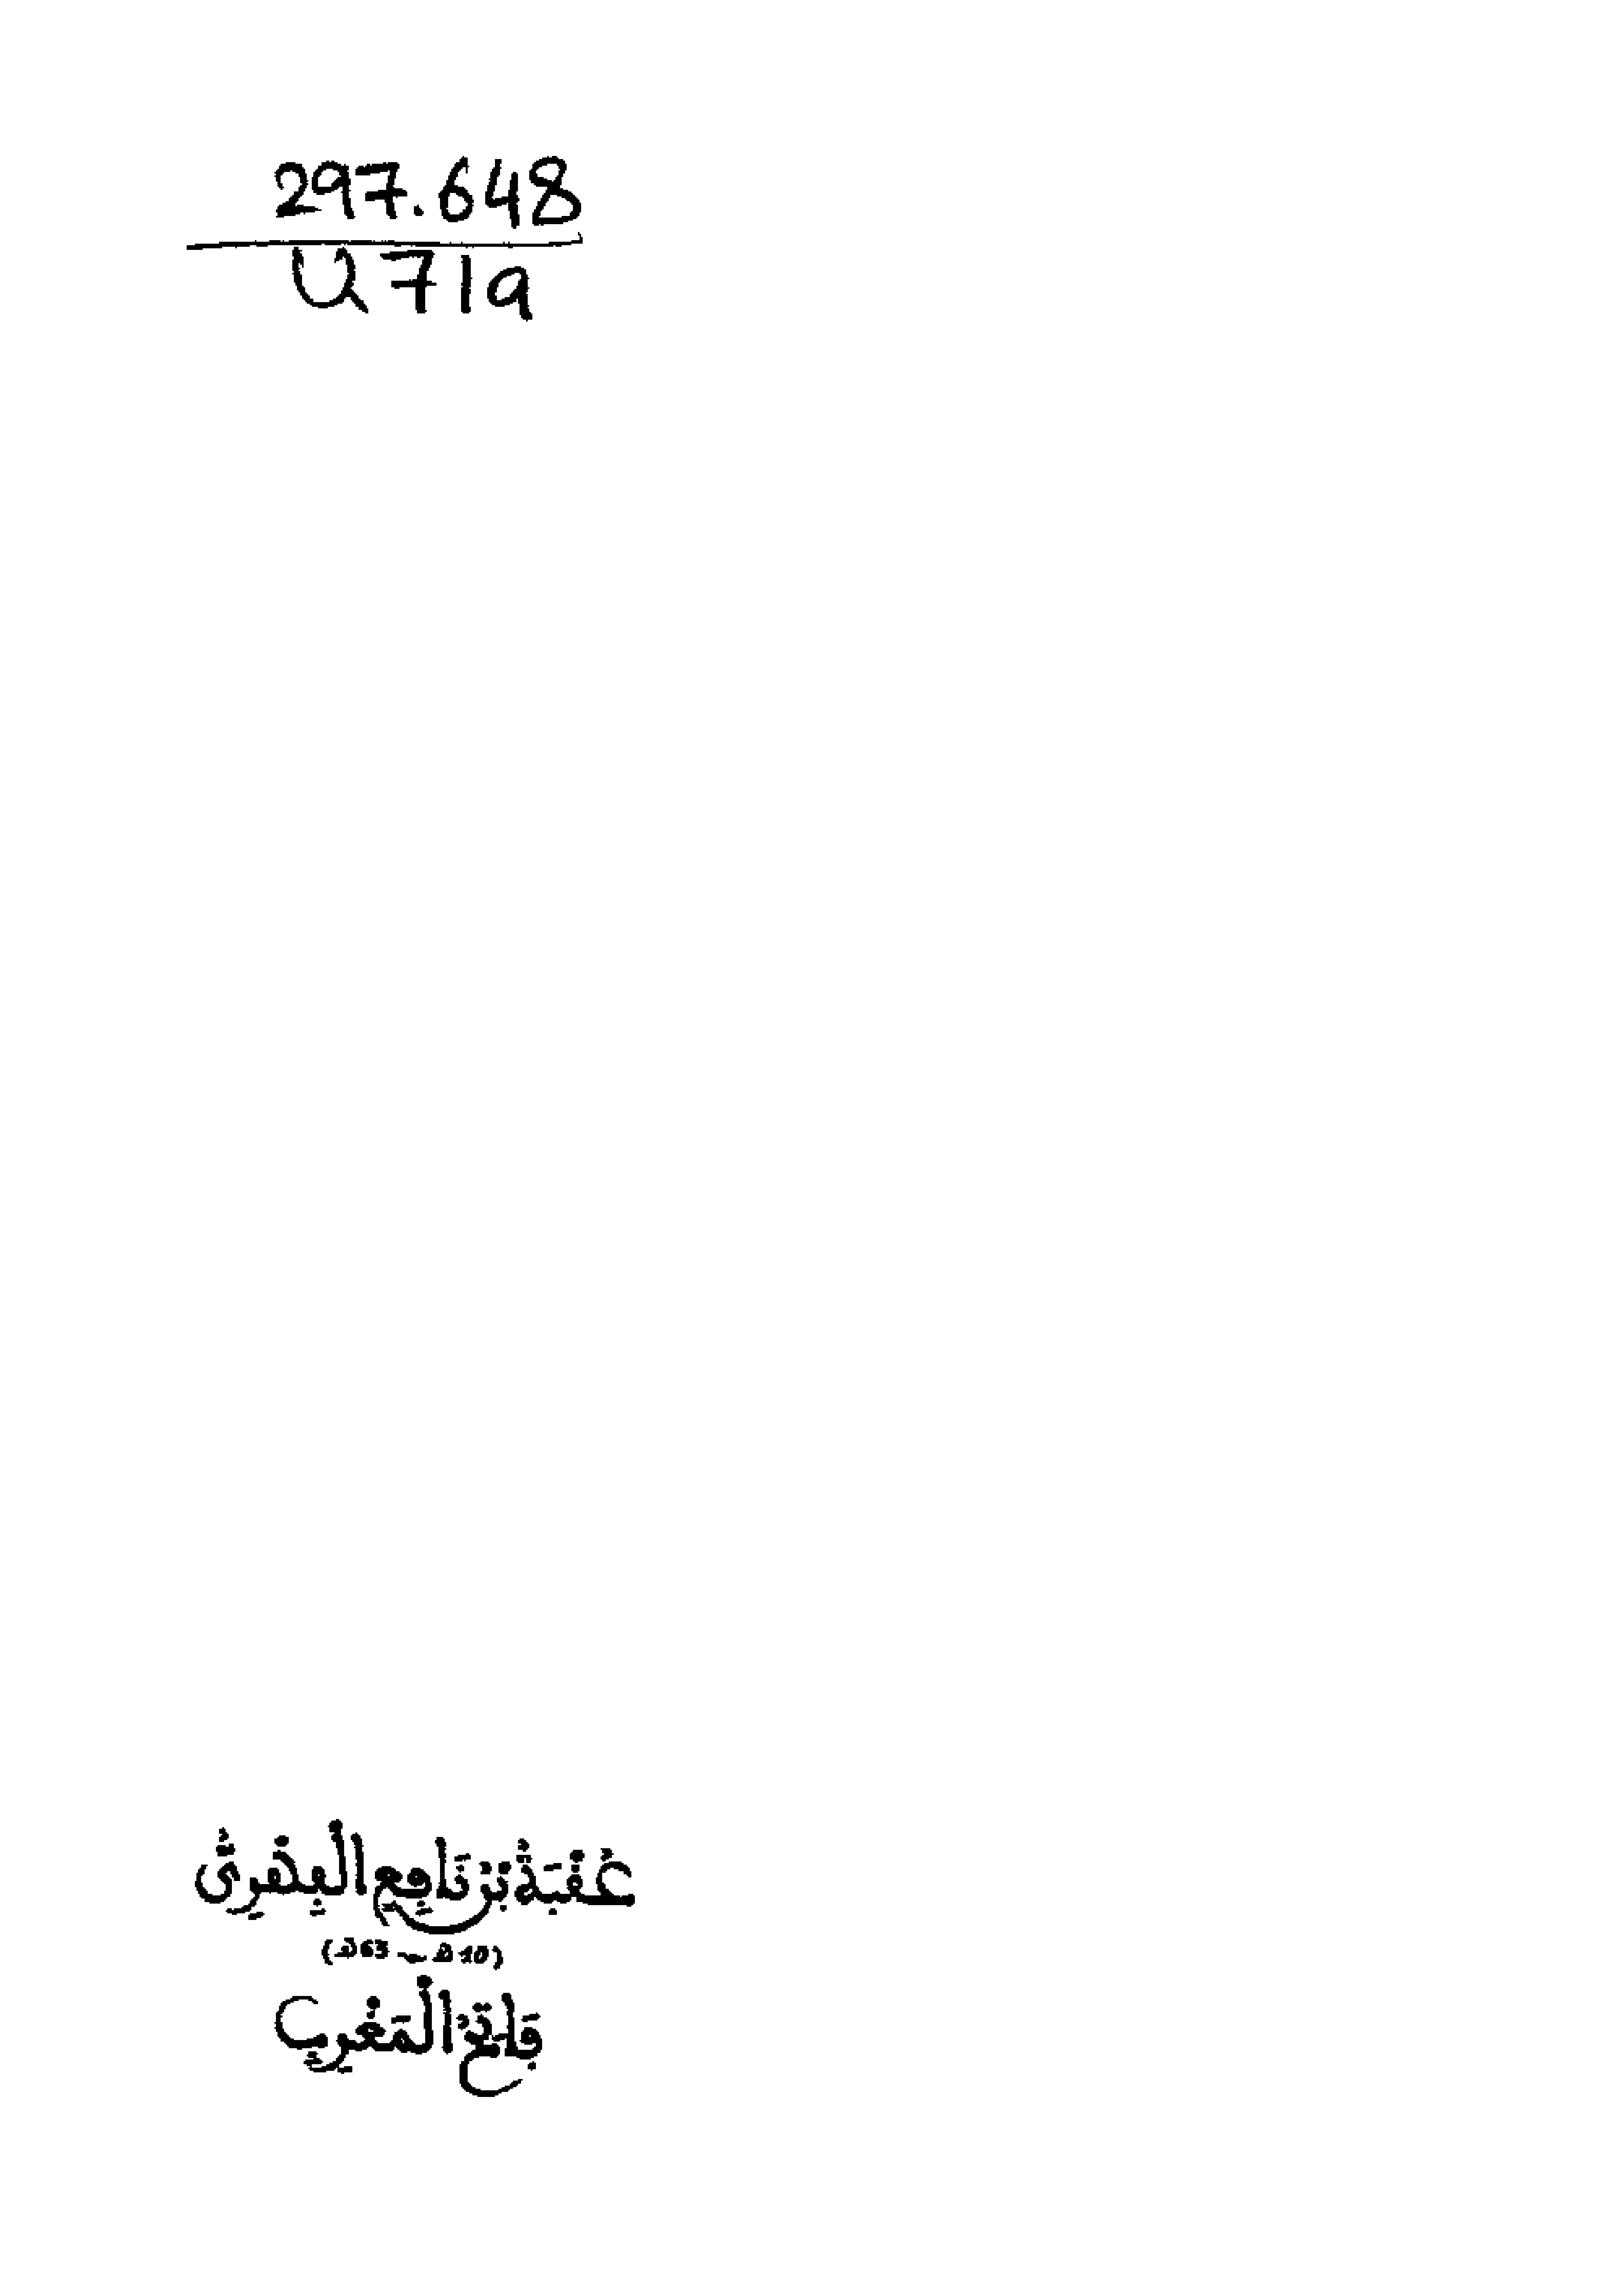 297.648
U71a
عُقْبَةُ بْنُ نَافِعِ الْفِهْرِيُّ
(10هـ - 63هـ)
فَاتِحُ الْمَغْرِبِ